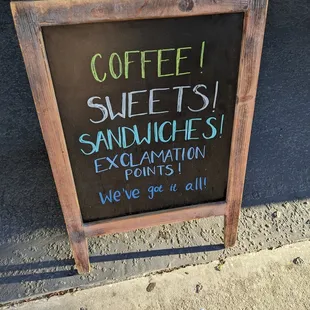 COFFEE!
SWEETS!
SANDWICHES!
EXCLAMATION
POINTS!
We've got it all!